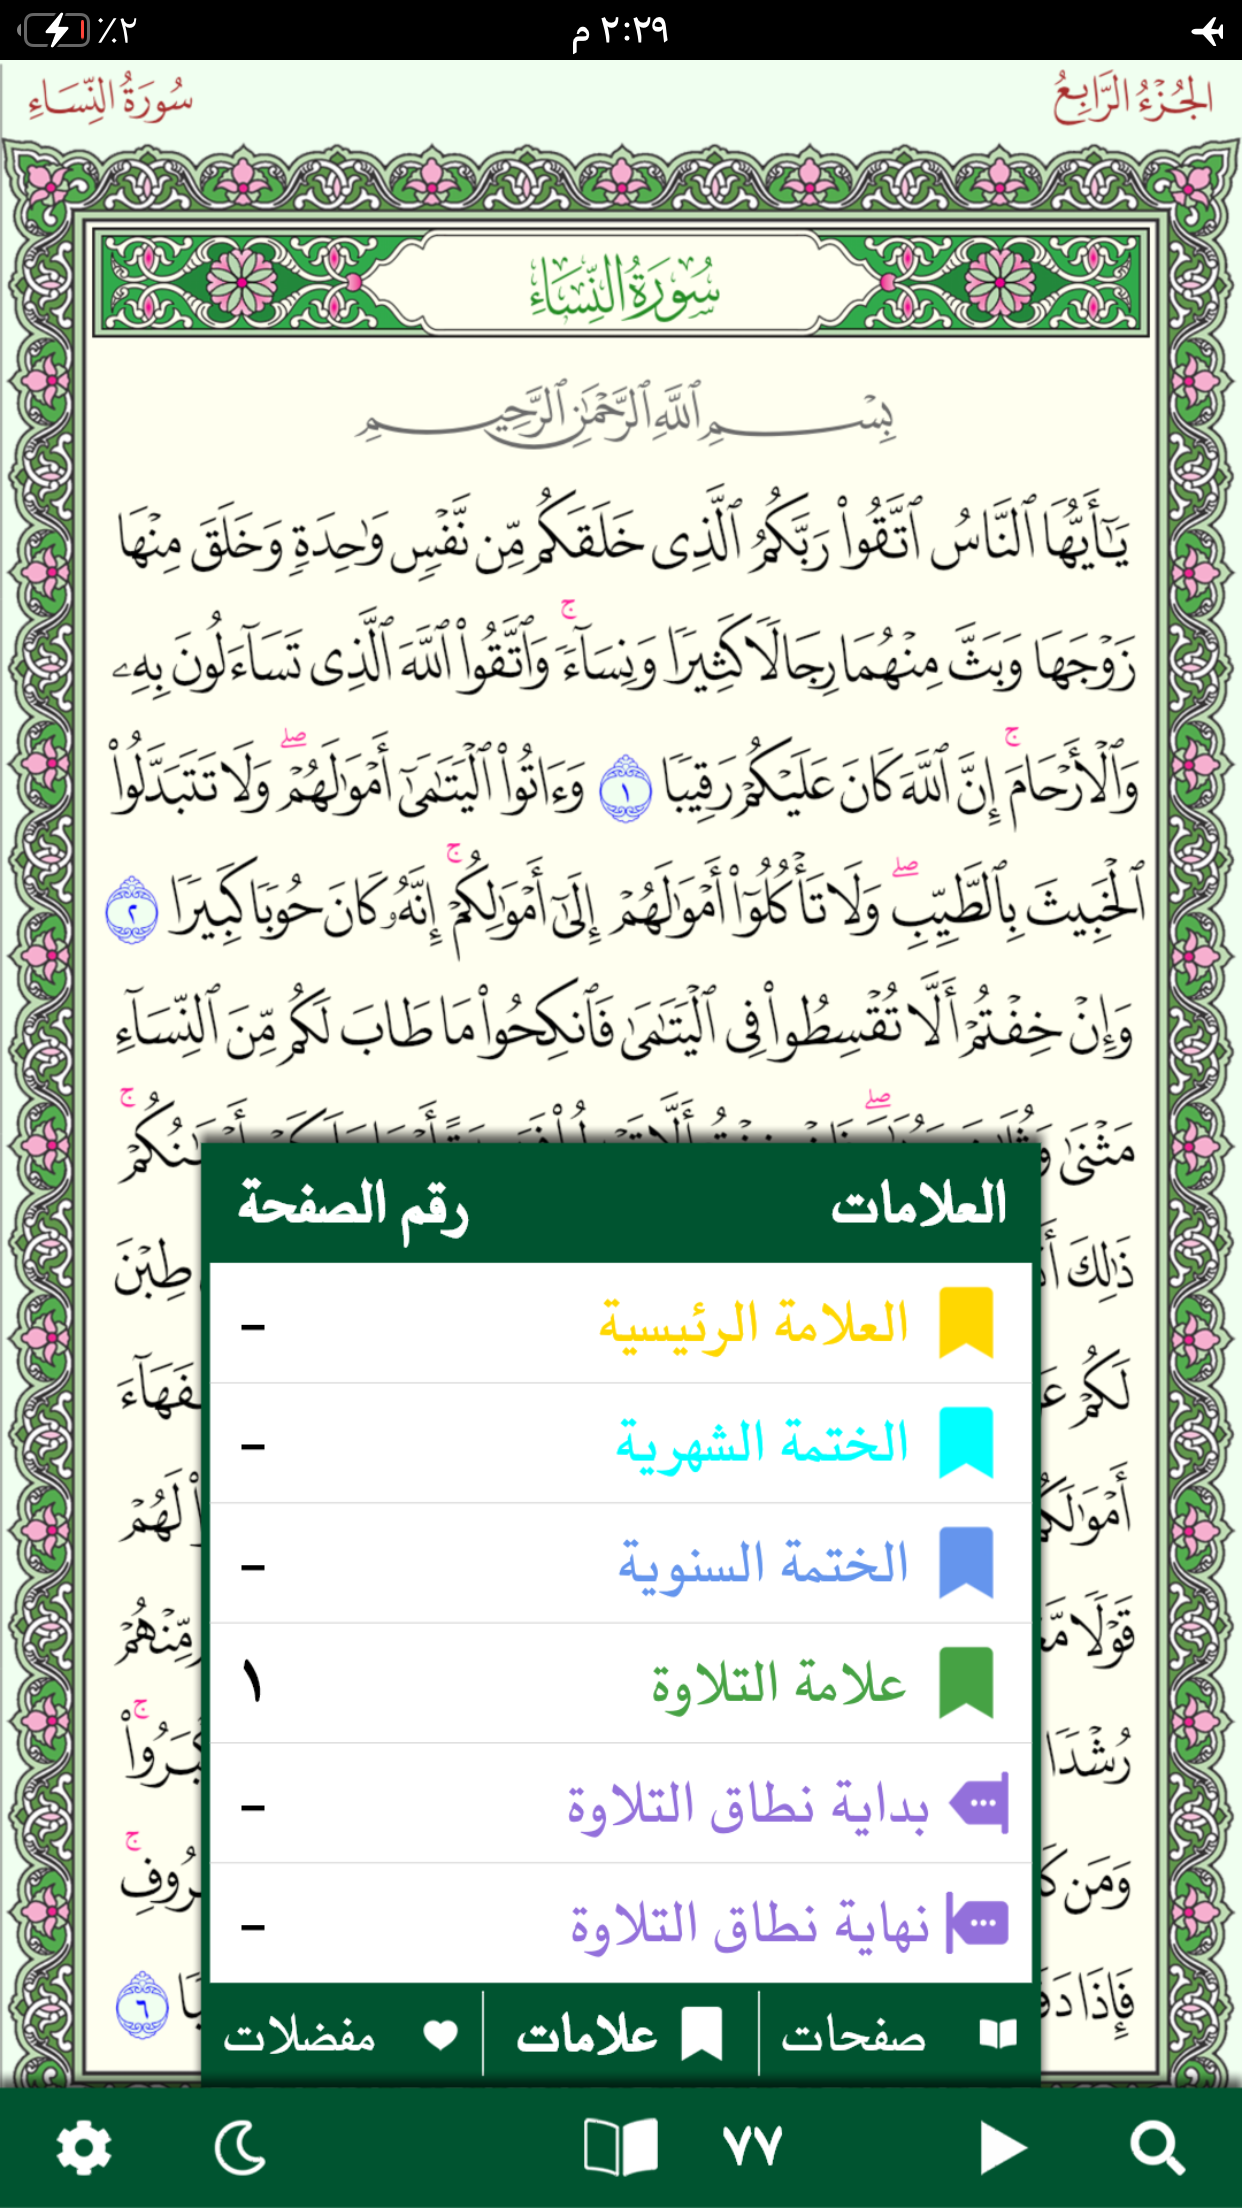 ٪٢ ٢:٢٩ م
الجُزْءُ الرَّابِعُ سُورَةُ النِّسَاءِ
سُورَةُ النِّسَاءِ
بِسْمِ ٱللَّهِ ٱلرَّحْمَٰنِ ٱلرَّحِيمِ
يَٰٓأَيُّهَا ٱلنَّاسُ ٱتَّقُوا۟ رَبَّكُمُ ٱلَّذِى خَلَقَكُم مِّن نَّفْسٍ وَٰحِدَةٍ وَخَلَقَ مِنْهَا
زَوْجَهَا وَبَثَّ مِنْهُمَا رِجَالًا كَثِيرًا وَنِسَآءً ۚ وَٱتَّقُوا۟ ٱللَّهَ ٱلَّذِى تَسَآءَلُونَ بِهِۦ
وَٱلْأَرْحَامَ ۚ إِنَّ ٱللَّهَ كَانَ عَلَيْكُمْ رَقِيبًا ١ وَءَاتُوا۟ ٱلْيَتَٰمَىٰٓ أَمْوَٰلَهُمْ ۖ وَلَا تَتَبَدَّلُوا۟
ٱلْخَبِيثَ بِٱلطَّيِّبِ ۖ وَلَا تَأْكُلُوٓا۟ أَمْوَٰلَهُمْ إِلَىٰٓ أَمْوَٰلِكُمْ ۚ إِنَّهُۥ كَانَ حُوبًا كَبِيرًا ٢
وَإِنْ خِفْتُمْ أَلَّا تُقْسِطُوا۟ فِى ٱلْيَتَٰمَىٰ فَٱنكِحُوا۟ مَا طَابَ لَكُم مِّنَ ٱلنِّسَآءِ
مَثْنَىٰ
ذَٰلِكَ طِبْنَ
لَكُمْ
قَوْلًا مِّنْهُمْ
رُشْدًا
وَمَن
فَإِذَا ٦
العلامات رقم الصفحة
العلامة الرئيسية –
الختمة الشهرية –
الختمة السنوية –
علامة التلاوة ١
بداية نطاق التلاوة –
نهاية نطاق التلاوة –
صفحات علامات مفضلات
٧٧